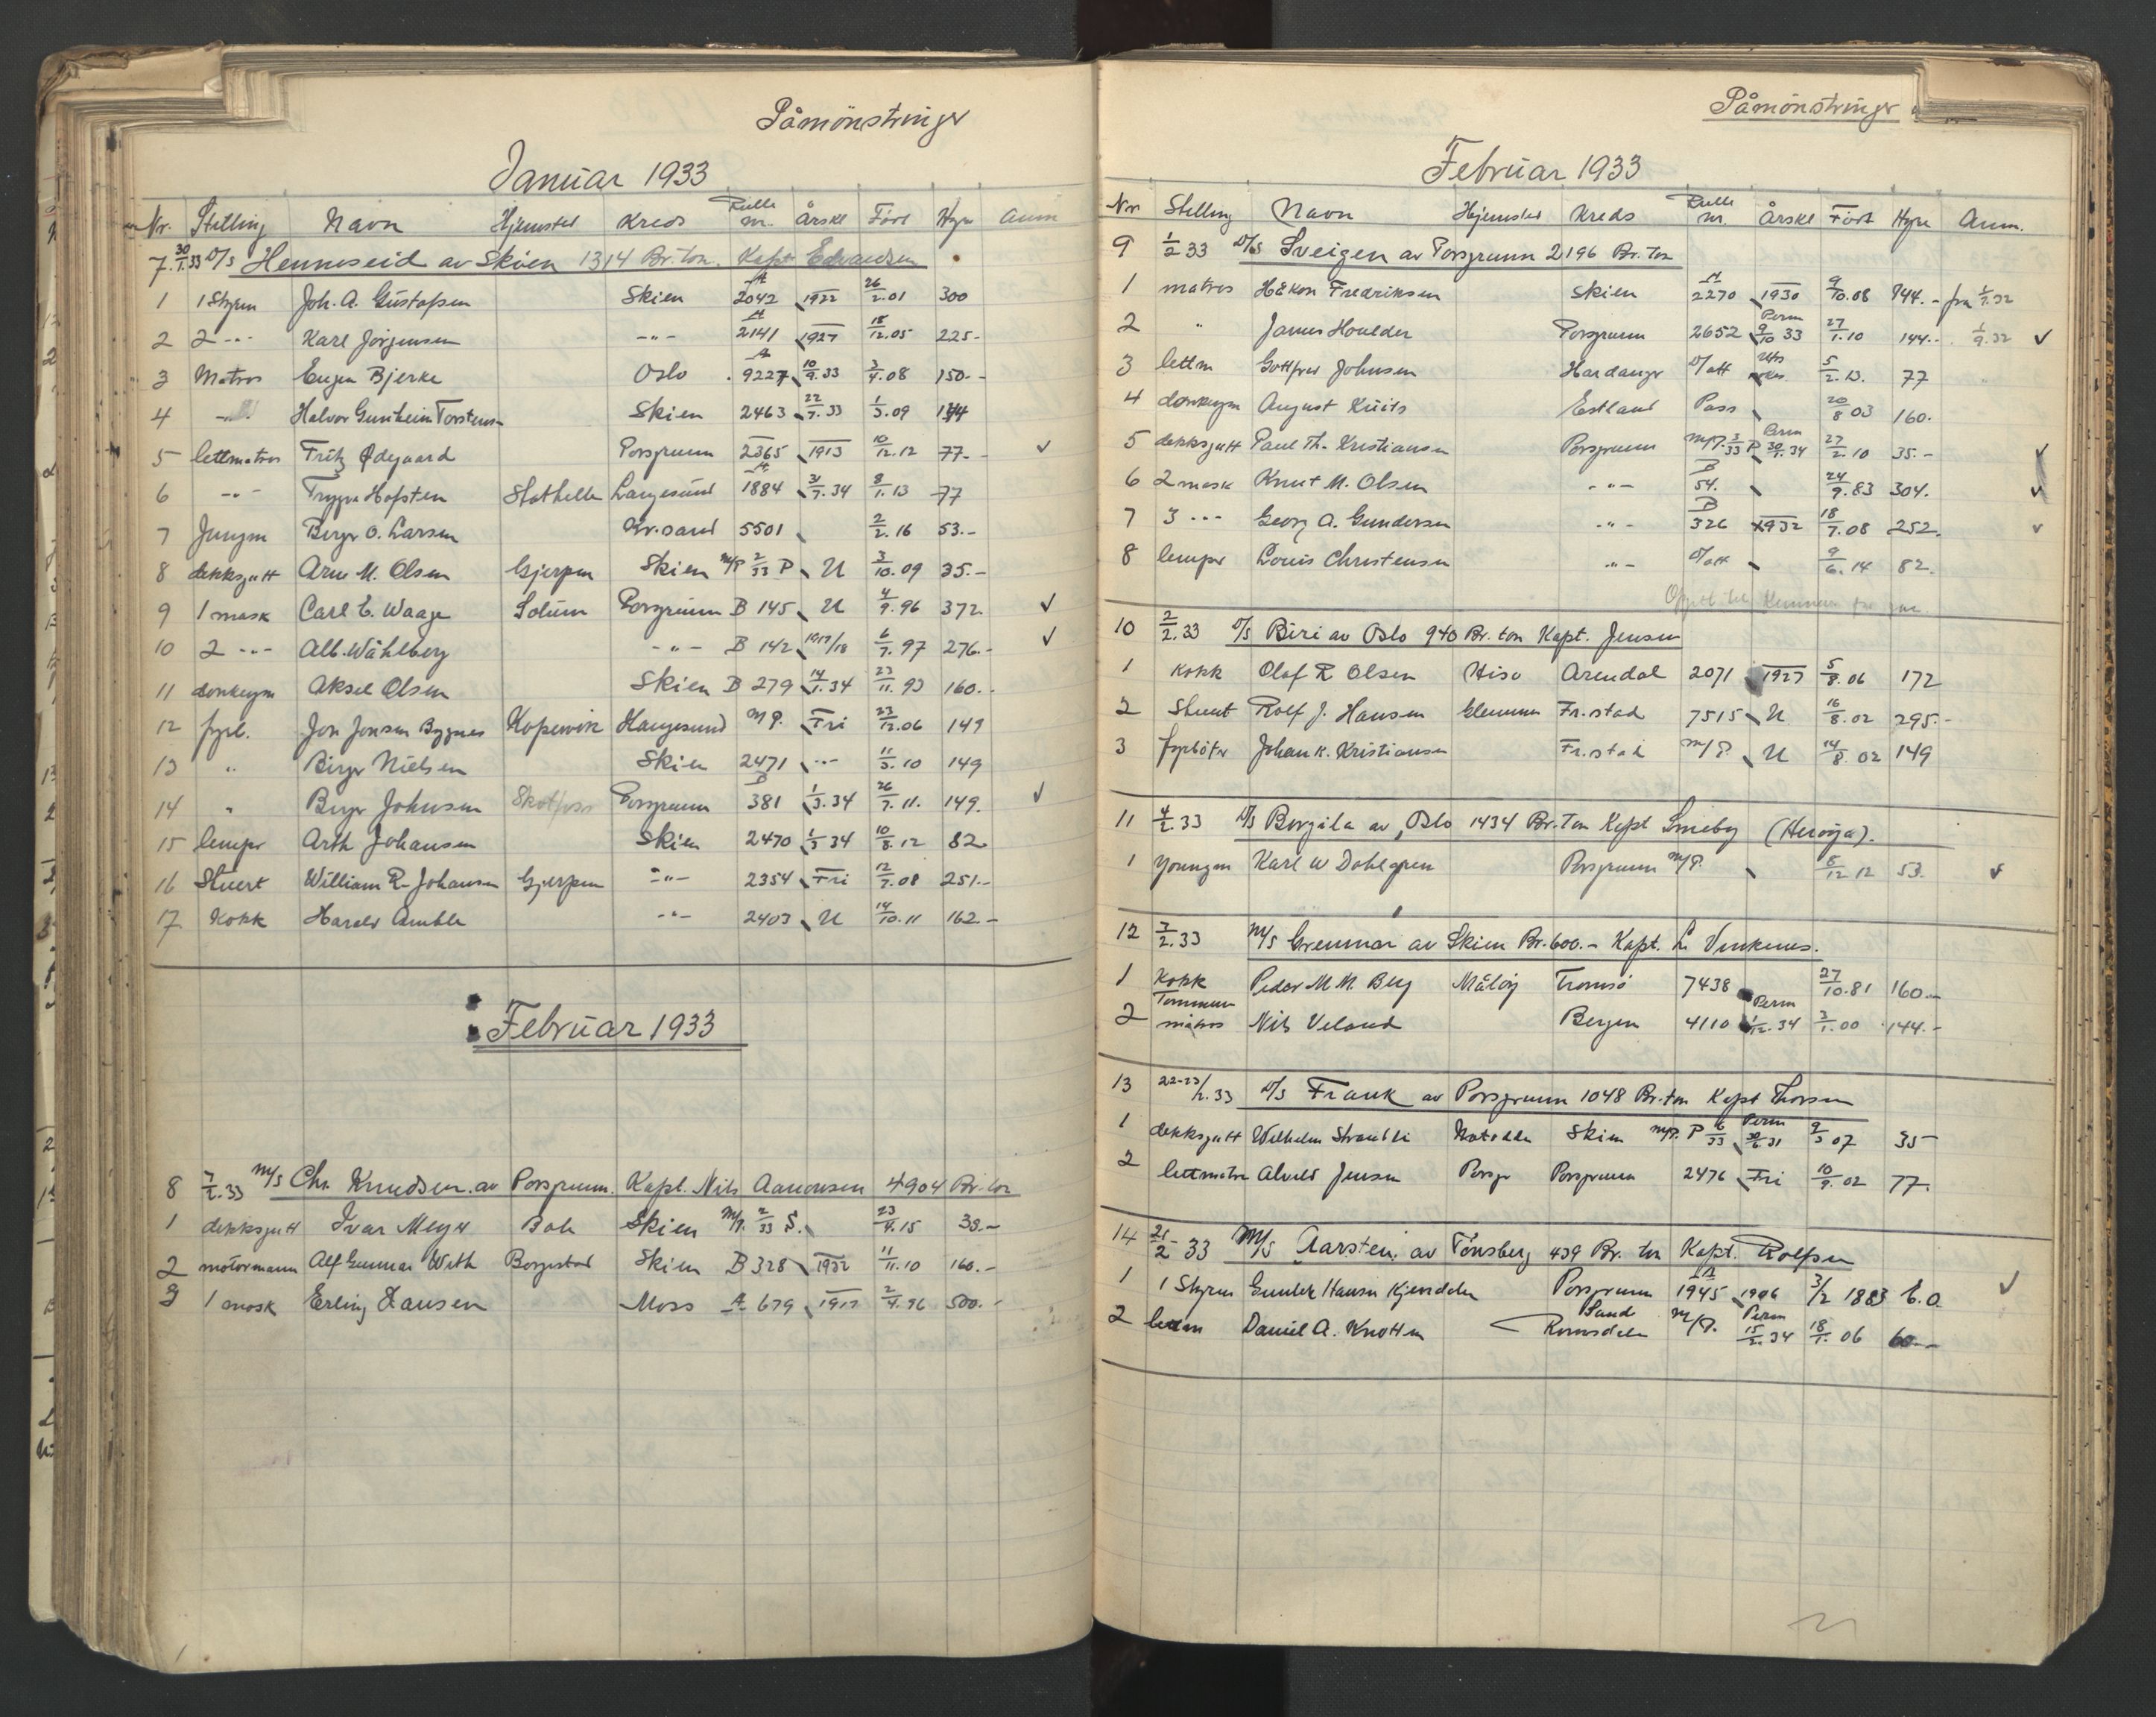 Påmönstringer
Januar 1933
Nr. Stilling Navn Hjemsted Kreds Rulle nr. Årskl Födt Hyre Anm
7 30/1.33 D/S Henneseid av Skien 1314 Br. ton. Kapt Edvardsen
1 1 Styrm Joh. A. Gustafsen Skien A 2042 1922 26/2.01 300
2 2 -"- Karl Jörgensen -"- A 2141 1927 18/12.05 225-
3 Matros Eugen Bjerke Oslo A 9227 10/9.33 3/4.08 150.-
4 -"- Halvor Gunheim Torstensen Skien 2463 22/7.33 1/3.09 144
5 lettmatros Fritz Ødegaard Porsgrunn 2365 1913 10/12.12 77.- ✓
6 -"- Trygve Hofsten Stathelle Langesund A 1884 31/7.34 8/1.13 77
7 Jungm Birger O. Larsen Kr.sand 5501 2/2.16 53.-
8 dekksgutt Arne M. Olsen Gjerpen Skien M/P 2/33 P U 3/10.09 35.-
9 1 mask Carl E. Waage Solum Porsgrunn B 145 U 4/9.96 372. ✓
10 2 -"- Alb. Wåhlberg -"- B 142 1917/18 6/7.97 276.- ✓
11 donkeym Aksel Olsen Skien B 279 14/1.34 23/11.93 160.-
12 fyrb. Jon Jonsen Bygnes Kopervik Haugesund M P. Fri 23/12.06 149
13 " Birger Nielsen Skien 2471 -"- 11/3.10 149
14 " Birger Johnsen Skotfoss Porsgrunn B 381 1/3.34 26/7.11. 149. ✓
15 lemper Arth Johansen Skien 2470 1/3 34 10/8.12 82
16 Stuert William R. Johansen Gjerpen -"- 2354 Fri 12/7.08 251.-
17 Kokk Harald Amble -"- 2403 U 14/10.11 162.-
Februar 1933
8 7/2.33 M/S Chr. Knudsen av Porsgrunn. Kapt. Nils Aanonsen 4904 Br. ton
1 dekksgutt Ivar Meyer Bole Skien M/P. 2/33 S. 23/4.15 35.-
2 motormann Alf Gunnar With Borgestad Skien B 328 1932 11/11.10 160.-
3 1 mask Erling Hansen Moss A 679 1917 2/4.96 500.-
Påmönstringer
Februar 1933
Nr Stilling Navn Hjemsted Kreds Rulle nr. Årskl Födt Hyre Anm.
9 1/2 33 D/S Sveigen av Porsgrunn 2196 Br. ton
1 matros Håkon Fredriksen Skien A 2270 1930 9/10.08 144.- fra 1/7.32
2 " James Houlder Porsgrunn 2652 Perm 9/10 33 27/1.10 144.- 1/9.32 ✓
3 lettm Gottfred Johnsen Hardanger D/att 5/2.13. 77
4 donkeym August Kuits Estland Pass 20/8 03 160.
5 dekksgutt Paul Th. Kristiansen Porsgrunn M/P. 3/33 P Perm 30/9.34 27/2.10 35.- ✓
6 2 mask Knut M. Olsen -"- B 54. 24/9.83 304. ✓
7 3 -"- Georg A. Gundersen -"- B 326 1932 18/7.08 252. ✓
8 lemper Louis Christensen -"- D/att 9/6.14 82.
10 2/2.33 D/S Biri av Oslo 940 Br. ton Kapt. Jensen
1 Kokk Olaf R Olsen Hisø Arendal 2071 1927 5/8.06 172
2 Stuert Rolf J. Hansen Glemmen Fr.stad 7515 U 16/8.02 295.-
3 fyrböter Johan K. Kristiansen Fr.stad M/P. U 14/8.02 149
11 4/2.33 D/S Borgila av Oslo 1434 Br. Ton Kapt Smeby (Herøya).
1 Youngm Karl W Dahlgren Porsgrunn M/P. 8/12 12 53. ✓
12 7/2.33 M/S Grenmar av Skien Br. 600.- Kapt. L. Vinkenes.
1 Kokk Peder M M. Berg Måløy Tromsö 7438 27/10.81 160.-
2 Tømmerm matros Nils Veland Bergen 4110 Perm 1/12.34 3/1.00 144.-
13 22-23/2.33 D/S Frank av Porsgrunn 1048 Br. ton Kapt Thorsen
1 dekksgutt Wilhelm Notodden Skien M/P. P 6/33 Perm 30/6 31 9/3 07 35-
2 lettmatros Alvild Jensen Porsgr Porsgrunn 2476 Fri 10/9.02 77.
14 25/2 33 M/S Aarsten. av Tönsberg 439 Br. ton Kapt. Rolfsen
1 1 Styrm Gunder Hansen Porsgrunn A 1945 1906 3/2 1883 E.O. ✓
2 lettm Daniel A. Knotten Sand Romsdalen M/P. Perm 15/2.34 18/1.06 60.-
21